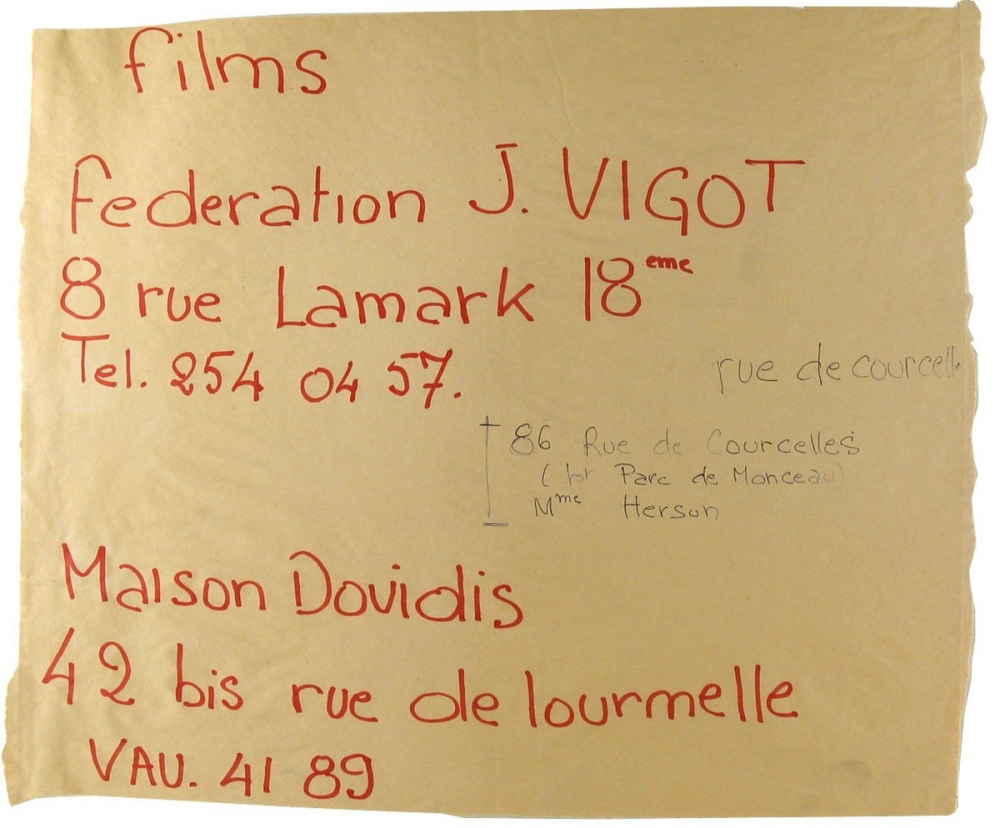 films
Federation J. VIGOT
8 rue Lamark 18eme
Tel. 254 04 57.
rue de courcell
86 Rue de Courcelles
Parc de Monceau)
Mme Herson
Maison Dovidis
42 bis rue de lourmelle
VAU. 41 89